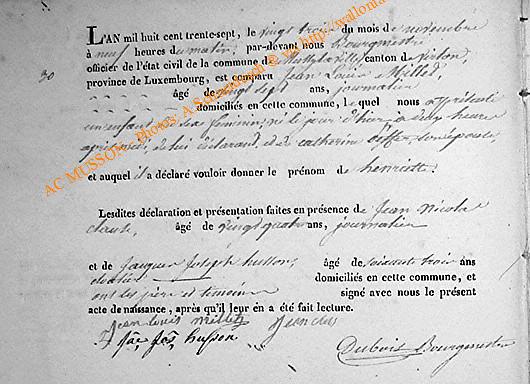 L'AN mil huit cent trente-sept, le vingt trois du mois de novembre
à neuf heures du matin; par-devant nous Bourgmestre
officier de l'état civil de la commune de canton de Virton,
30
province de Luxembourg, est comparu Jean Louis Milletz
âgé de vingt sept ans, journalier
domiciliés en cette commune, lequel nous a présenté
un enfant du sexe féminin, né le jour d'hier à heures
après midi, de lui déclarant, et de catherine son épouse,
et auquel il a déclaré vouloir donner le prénom de henriette.
Lesdites déclaration et présentation faites en présence de Jean Nicolas
claude, âgé de vingt quatre ans, journalier
et de jacques Joseph husson, âgé de soixante trois ans
domiciliés en cette commune, et
ont les père et témoins signé avec nous le présent
acte de naissance, après qu'il leur en a été fait lecture.
jean louis milletz
husson
Duboit Bourgmestre
AC MUSSON. Photos: A.S. http://wallonia